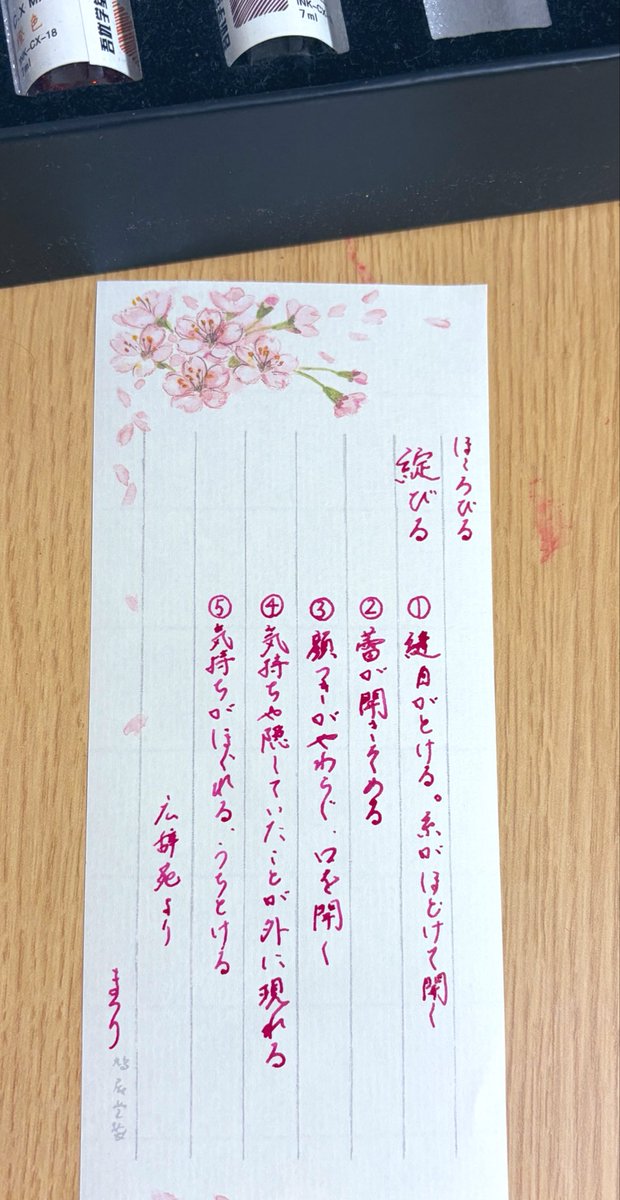 INK-CX-18
7ml
INK-CX
7ml
ほころびる
綻びる
①縫目がとける。糸がほどけて開く
②蕾が開きそめる
③顔つきがやわらぐ、口を開く
④気持ちや隠していたことが外に現れる
⑤気持ちがほぐれる、うちとける
広辞苑より
まつり
鳩居堂製